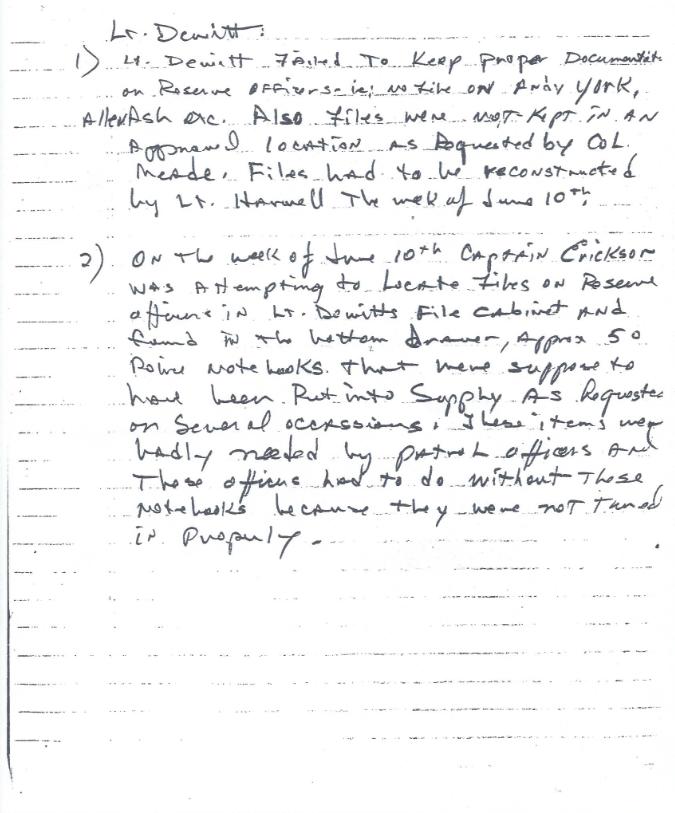 Lt. Dewitt:
1) Lt. Dewitt Failed To Keep proper Documentat
on Reserve Officers - ie; no file on Andy York,
Allen Ash etc. Also files were not kept in an
Approved location as Requested by Col.
Meade. Files had to be reconstructed
by Lt. Harwell The week of June 10th.
2) On the week of June 10th Captain Erickson
was Attempting to Locate files on Reserve
officers in Lt. Dewitts File cabinet and
found in the bottom drawer, Approx 50
Police Note books that were suppose to
have been Put into Supply As Requested
on Several occassions. These items wer
badly needed by patrol officers and
These officers had to do without These
Notebooks because they were not Turned
in Properly.